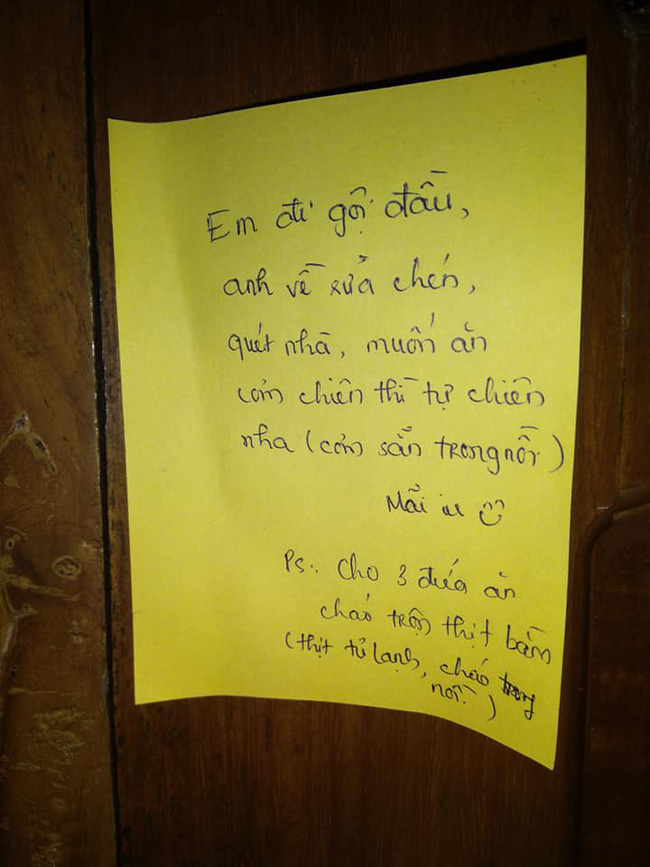 Em đi gội đầu,
anh về rửa chén,
quét nhà, muốn ăn
cơm chiên thì tự chiên
nha (cơm sẵn trong nồi)
Mãi iu
Ps: Cho 3 đứa ăn
cháo trộn thịt bằm
(thịt tủ lạnh, cháo trong
nồi.)